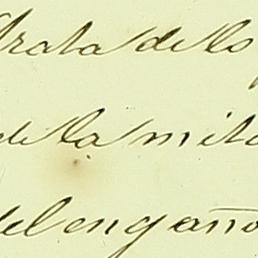 trata de lo
de la mita
del engaño